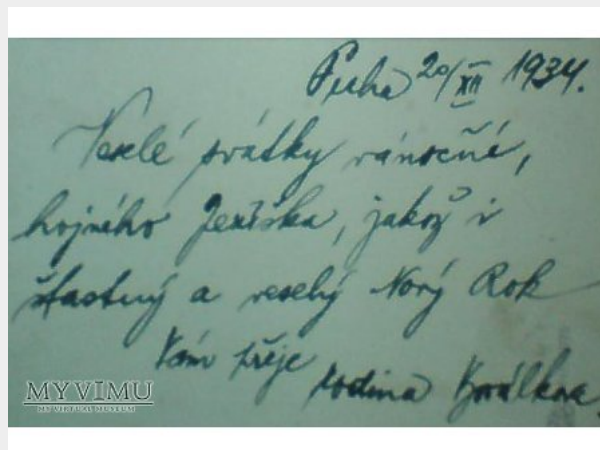 Praha 20/XII 1934.
Veselé svátky vánoční,
hojného Ježíška, jakož i
šťastný a veselý Nový Rok
Vám přeje
rodina
MYVIMU
MY VIRTUAL MUSEUM